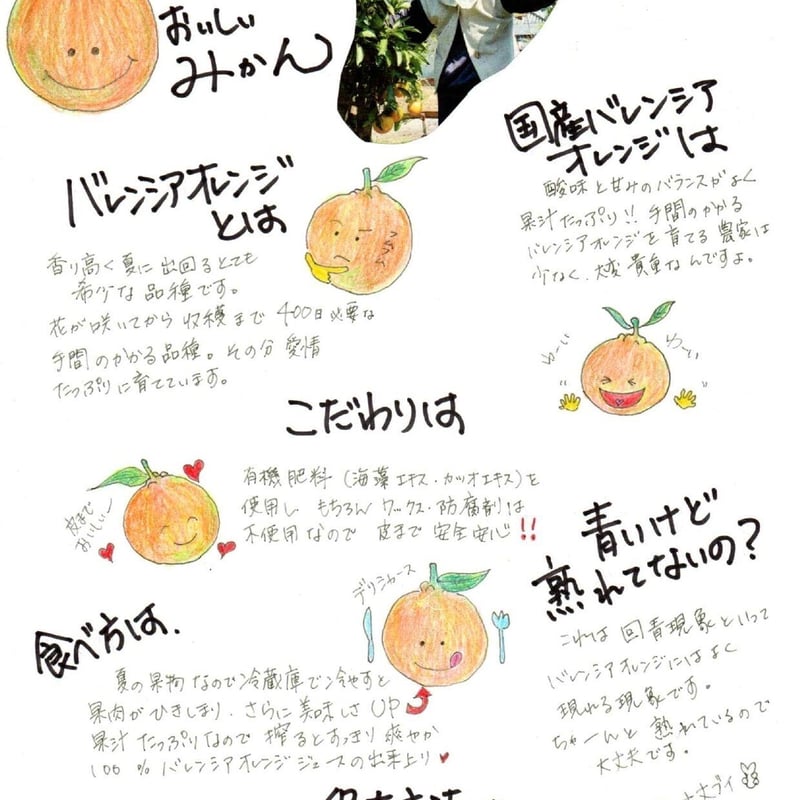 おいしい
みかん
バレンシアオレンジ
とは
香り高く夏に出回るとても
希少な品種です。
花が咲いてから収穫まで400日必要な
手間のかかる品種。その分愛情
たっぷりに育てています。
国産バレンシア
オレンジは
酸味と甘みのバランスがよく
果汁たっぷり!!手間のかかる
バレンシアオレンジを育てる農家は
少なく、大変貴重なんですよ。
わーい
わーい
こだわりは
皮まで
おいしいー
有機肥料(海藻エキス・カツオエキス)を
使用し もちろんワックス・防腐剤は
不使用なので 皮まで安全安心!!
青いけど
熟れてないの?
これは回青現象といって
バレンシアオレンジにはよく
現れる現象です。
ちゃーんと熟れているので
大丈夫です。
食べ方は、
デリシャース
夏の果物なので冷蔵庫で冷やすと
果肉がひきしまり、さらに美味しさUP
果汁たっぷりなので搾るとすっきり爽やか
100%バレンシアオレンジジュースの出来上り